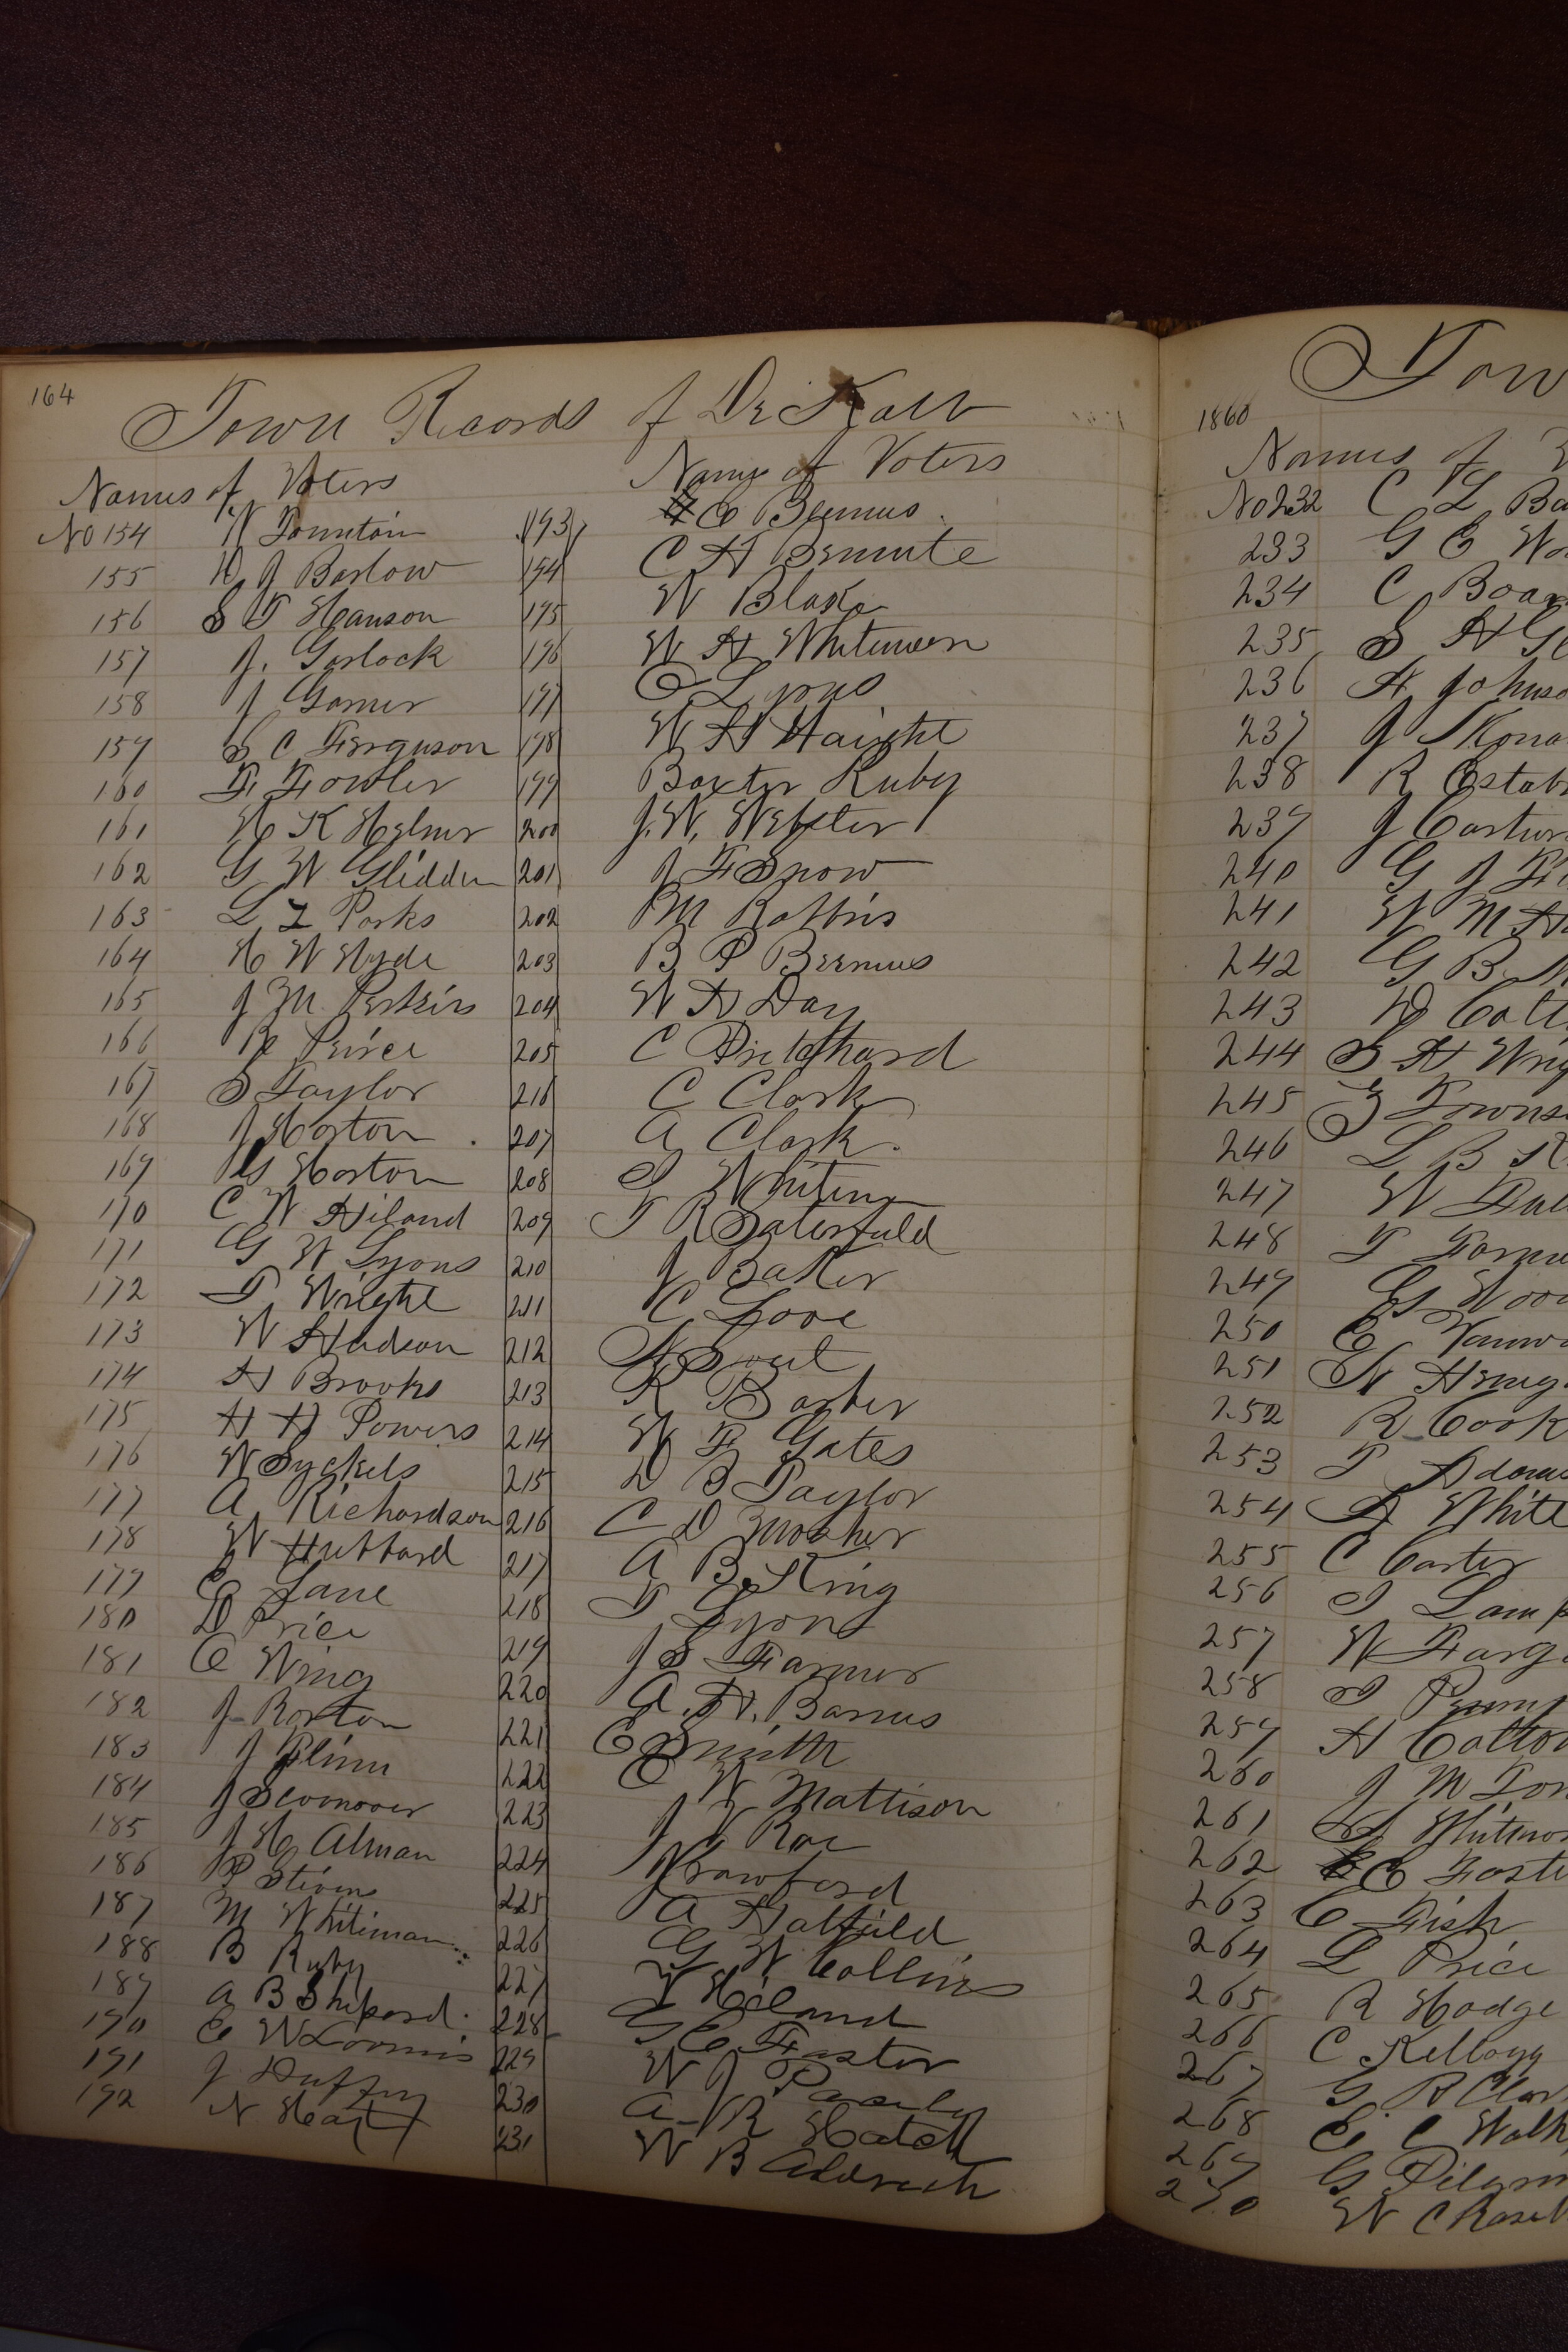 164
Town Records of De Kalb
Names of Voters
No 154 W Fountain
155 D J Barlow
156 S T Hanson
157 J. Garlock
158 J Garner
159 S C Ferguson
160 F Fowler
161 H K Helmer
162 G W Glidden
163 L L Parks
164 H W Hyde
165 J M Perkins
166 R Peirce
167 S Taylor
168 J Horton
169 G Horton
170 C W Hiland
171 G W Lyons
172 T Wright
173 W Hudson
174 H Brooks
175 H H Powers
176 W Syckels
177 A Richardson
178 W Hubbard
179 E Lane
180 D Price
181 C Wing
182 J Borton
183 J Flinn
184 J Scovnover
185 J H Alman
186 P Stevens
187 M Whitman
188 B Ruby
189 A B Shepard.
190 E W Loomis
191 J Duffey
192 N Heart
Names of Voters
193 C Beemus.
194 C H
195 W Blake
196 W H Whitman
197 E Lyons
198 W H Haight
199 Baxter Ruby
200 J. W. Webster
201 J F Snow
202 M Robbins
203 B P Beemus
204 W H Day
205 C Pritchard
216 C Clark
207 A Clark.
208 S Whiting
209 T R Saterfield
210 J Baker
211 C Love
212 N
213 R Barber
214 W F Gates
215 D B Taylor
216 C D Mosher
217 A B King
218 T Lyons
219 J S Farmer
220 A. H. Barnes
221 E Smith
222 E W Mattison
223 J V Rae
224 J Crawford
225 A Hatfield
226 G W Collins
227 T Hiland
228 G E Foster
229 W J
230 A R Hatch
231 W B Aldrich
Tow
1860
Names of V
No 232 C L Ba
233 G E Wo
234 C Boar
235 S H Ge
236 H Johnso
237 J Kona
238 R Estab
239 J Castur
240 G J Fi
241 W M Ha
242 G B M
243 D Colt
244 S H Wrig
245 Z Towns
246 L B R
247 W Ful
248 T Farme
249 G Woo
250 E Vanw
251 N Heng
252 R Cook
253 T Adams
254 A White
255 C Carter
256 I Lamp
257 W Farg
258 I Penny
259 H Colto
260 J M Tow
261 S Whitmo
262 C Foste
263 C Fish
264 L Price
265 R Hodge
266 C Kellogg
267 G R Clar
268 E C Walk
269 G Pilgrim
270 W C Rasel